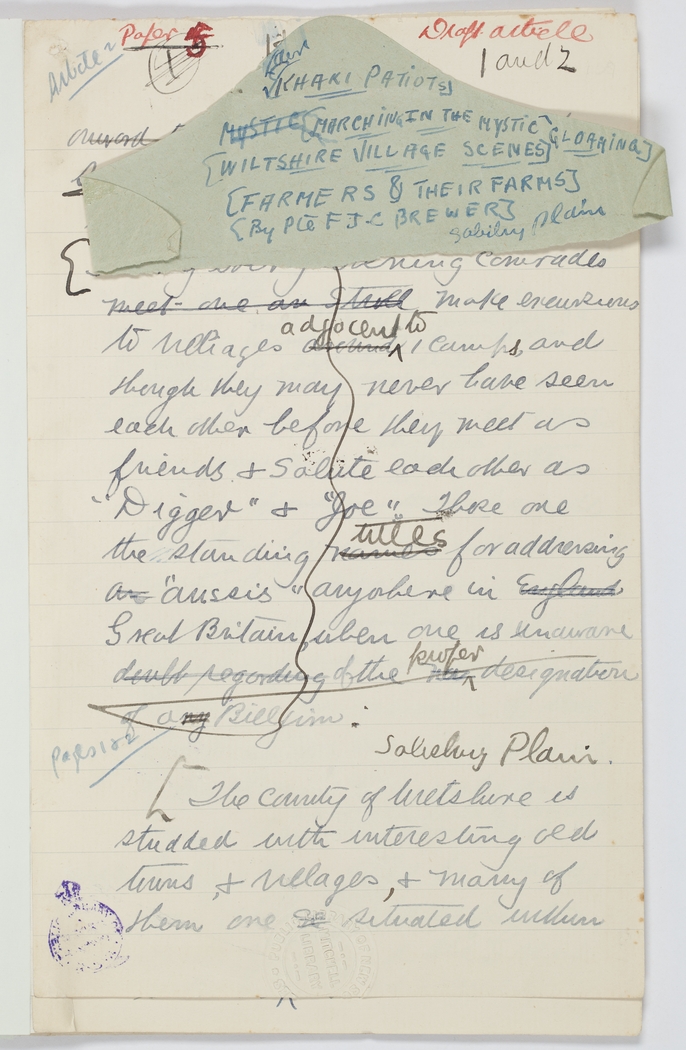 Paper 5
Draft article
Article 2
1
1 and 2
KHAKI PATIOTS
MYSTIC [MARCHING IN THE MYSTIC GLOAMING]
[WILTSHIRE VILLAGE SCENES]
[FARMERS & THEIR FARMS]
[By Pte F J C BREWER]
Salisbury Plain
onward
evening Comrades
meet one an stroll make excursions
to villages around adjacent to camps, and
though they may never have seen
each other before they meet as
friends & Salute each other as
"Digger" & "Joe". These are
the standing names titles for addressing
an "aussie" anyohere in England
Great Britain, when one is unaware
doubt regarding of the proper designation
of any Billjim.
Salisbury Plain.
Pages 1 & 2
[The County of Wiltshire is
studded with interesting old
towns, & villages, & many of
them are situated within